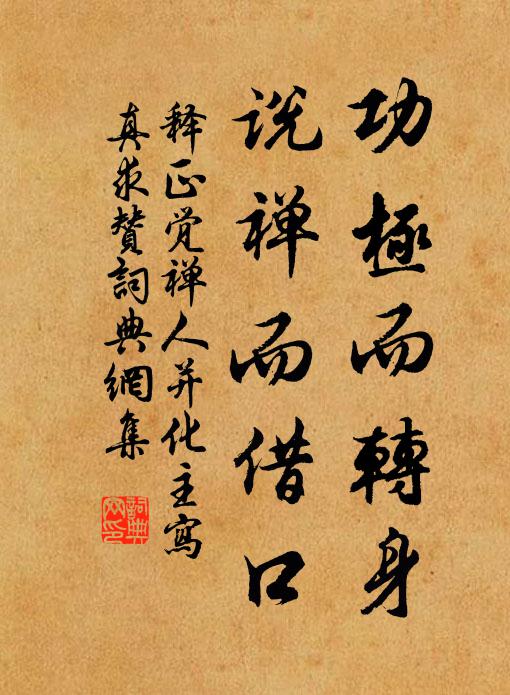 功極而轉身
说禅而借口
释正觉禅人并化主寫
真求赞詞典網集
詞典
网印